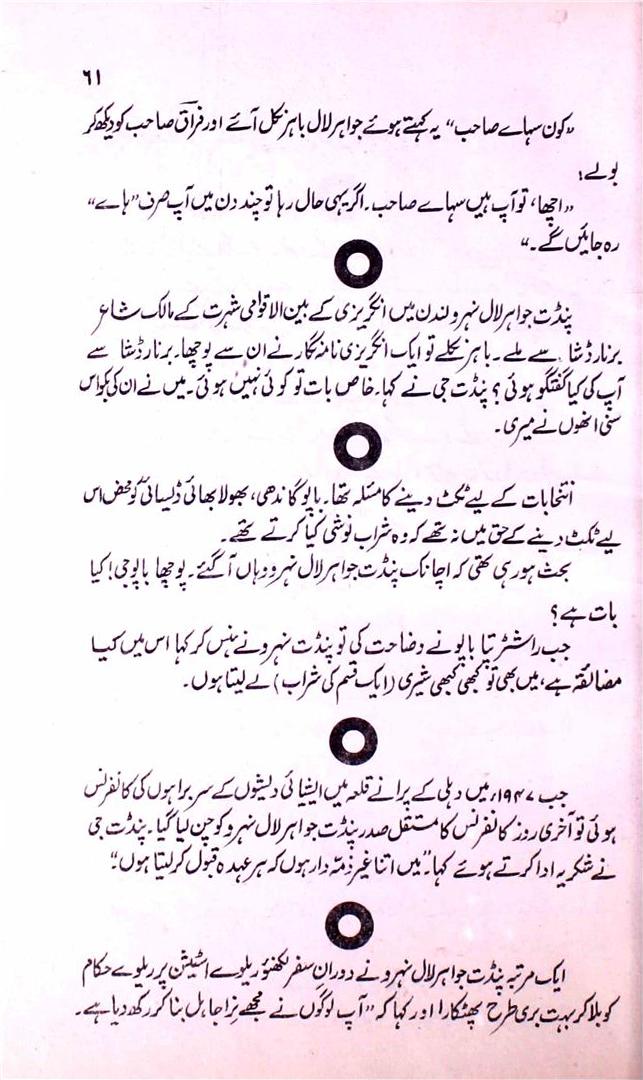 ۶۱
"کون سہاے صاحب" یہ کہتے ہوئے جواہر لال باہر نکل آئے اور فراقؔ صاحب کو دیکھ کر
بولے؛
"اچھا، تو آپ ہیں سہاے صاحب۔ اگر یہی حال رہا تو چند دن میں آپ صرف "ہاے"
رہ جائیں گے۔"
پنڈت جواہر لال نہرو لندن میں انگریزی کے بین الاقوامی شہرت کے مالک شاعر
برنارڈشا سے ملے۔ باہر نکلے تو ایک انگریزی نامہ نگار نے ان سے پوچھا۔ برنارڈشا سے
آپ کی کیا گفتگو ہوئی؟ پنڈت جی نے کہا۔ خاص بات تو کوئی نہیں ہوئی۔ میں نے ان کی بکواس
سنی انھوں نے میری۔
انتخابات کے لیے ٹکٹ دینے کا مسئلہ تھا۔ باپو گاندھی، بھولا بھائی ڈیسائی کو محض اس
لیے ٹکٹ دینے کے حق میں نہ تھے کہ وہ شراب نوشی کیا کرتے تھے۔
بحث ہو رہی تھی کہ اچانک پنڈت جواہر لال نہرو وہاں آ گئے۔ پوچھا باپو جی! کیا
بات ہے؟
جب راشٹر پتا باپو نے وضاحت کی تو پنڈت نہرو نے ہنس کر کہا اس میں کیا
مضائقہ ہے، میں بھی تو کبھی کبھی شیری (ایک قسم کی شراب) لے لیتا ہوں۔
جب ۱۹۴۷ء میں دہلی کے پرانے قلعہ میں ایشیائی دیشوں کے سربراہوں کی کانفرنس
ہوئی تو آخری روز کانفرنس کا مستقل صدر پنڈت جواہر لال نہرو کو چن لیا گیا۔ پنڈت جی
نے شکریہ ادا کرتے ہوئے کہا۔ "میں اتنا غیر ذمّہ دار ہوں کہ ہر عہدہ قبول کر لیتا ہوں۔"
ایک مرتبہ پنڈت جواہر لال نہرو نے دورانِ سفر لکھنؤ ریلوے اسٹیشن پر ریلوے حکام
کو بلا کر بہت بری طرح پھٹکارا اور کہا کہ "آپ لوگوں نے مجھے نِرا جاہل بنا کر رکھ دیا ہے۔